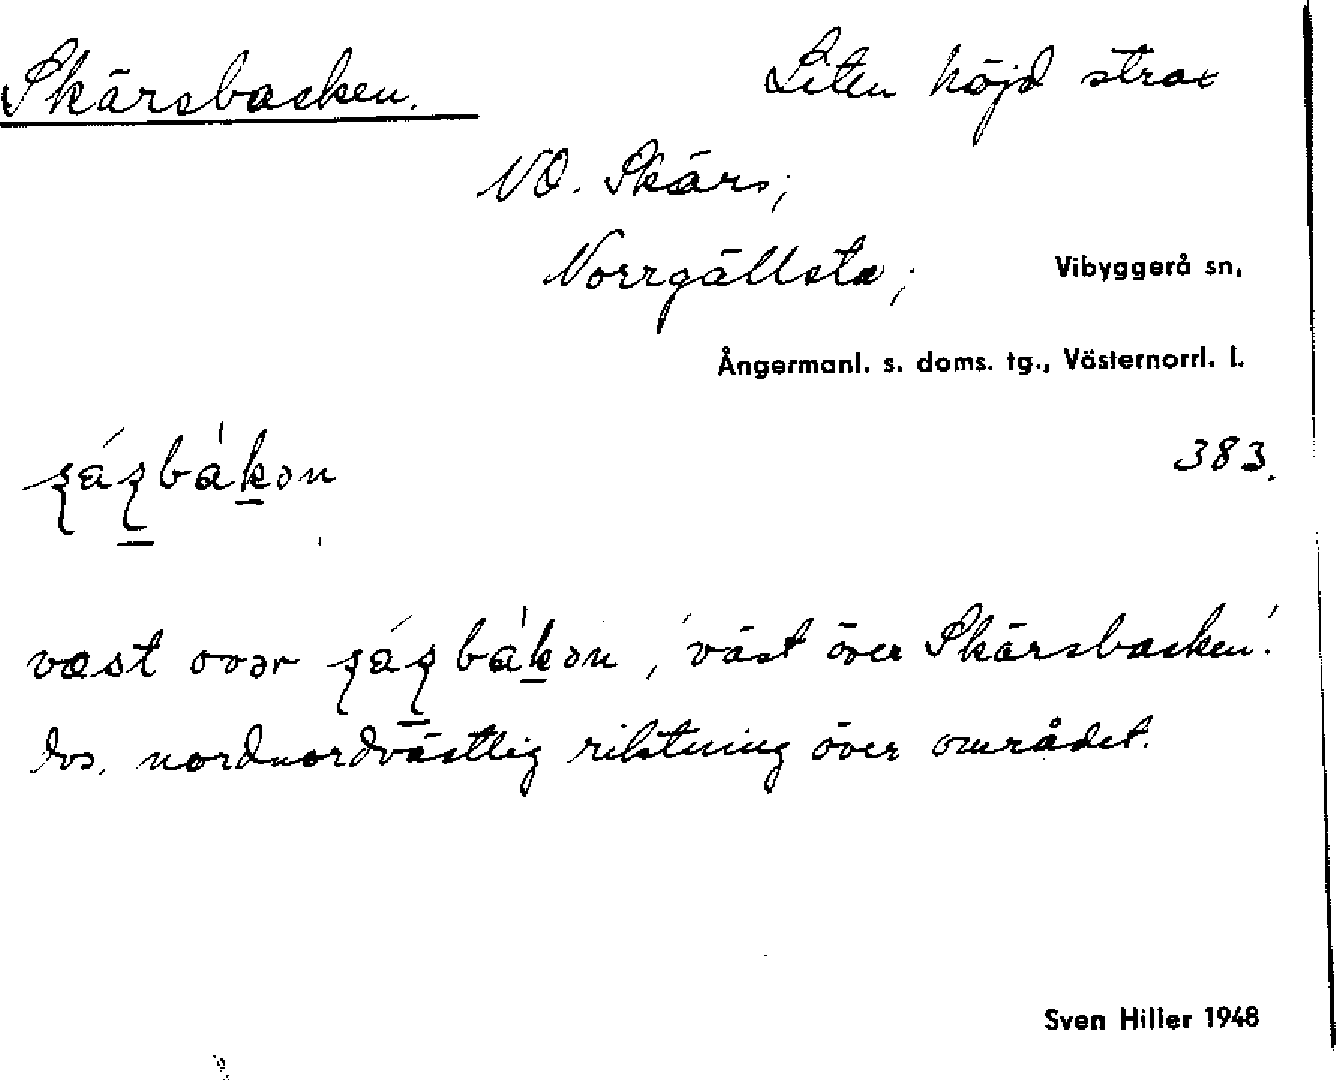 Skärsbacken.
Liten höjd strax
NO. Skärs;
Norrgällsta;
Vibyggerå sn.
Ångermanl. s. doms. tg., Västernorrl. l.
383.
væst ovər
, 'väst över Skärsbacken'.
dvs. nordnordvästlig riktning över området.
Sven Hiller 1948